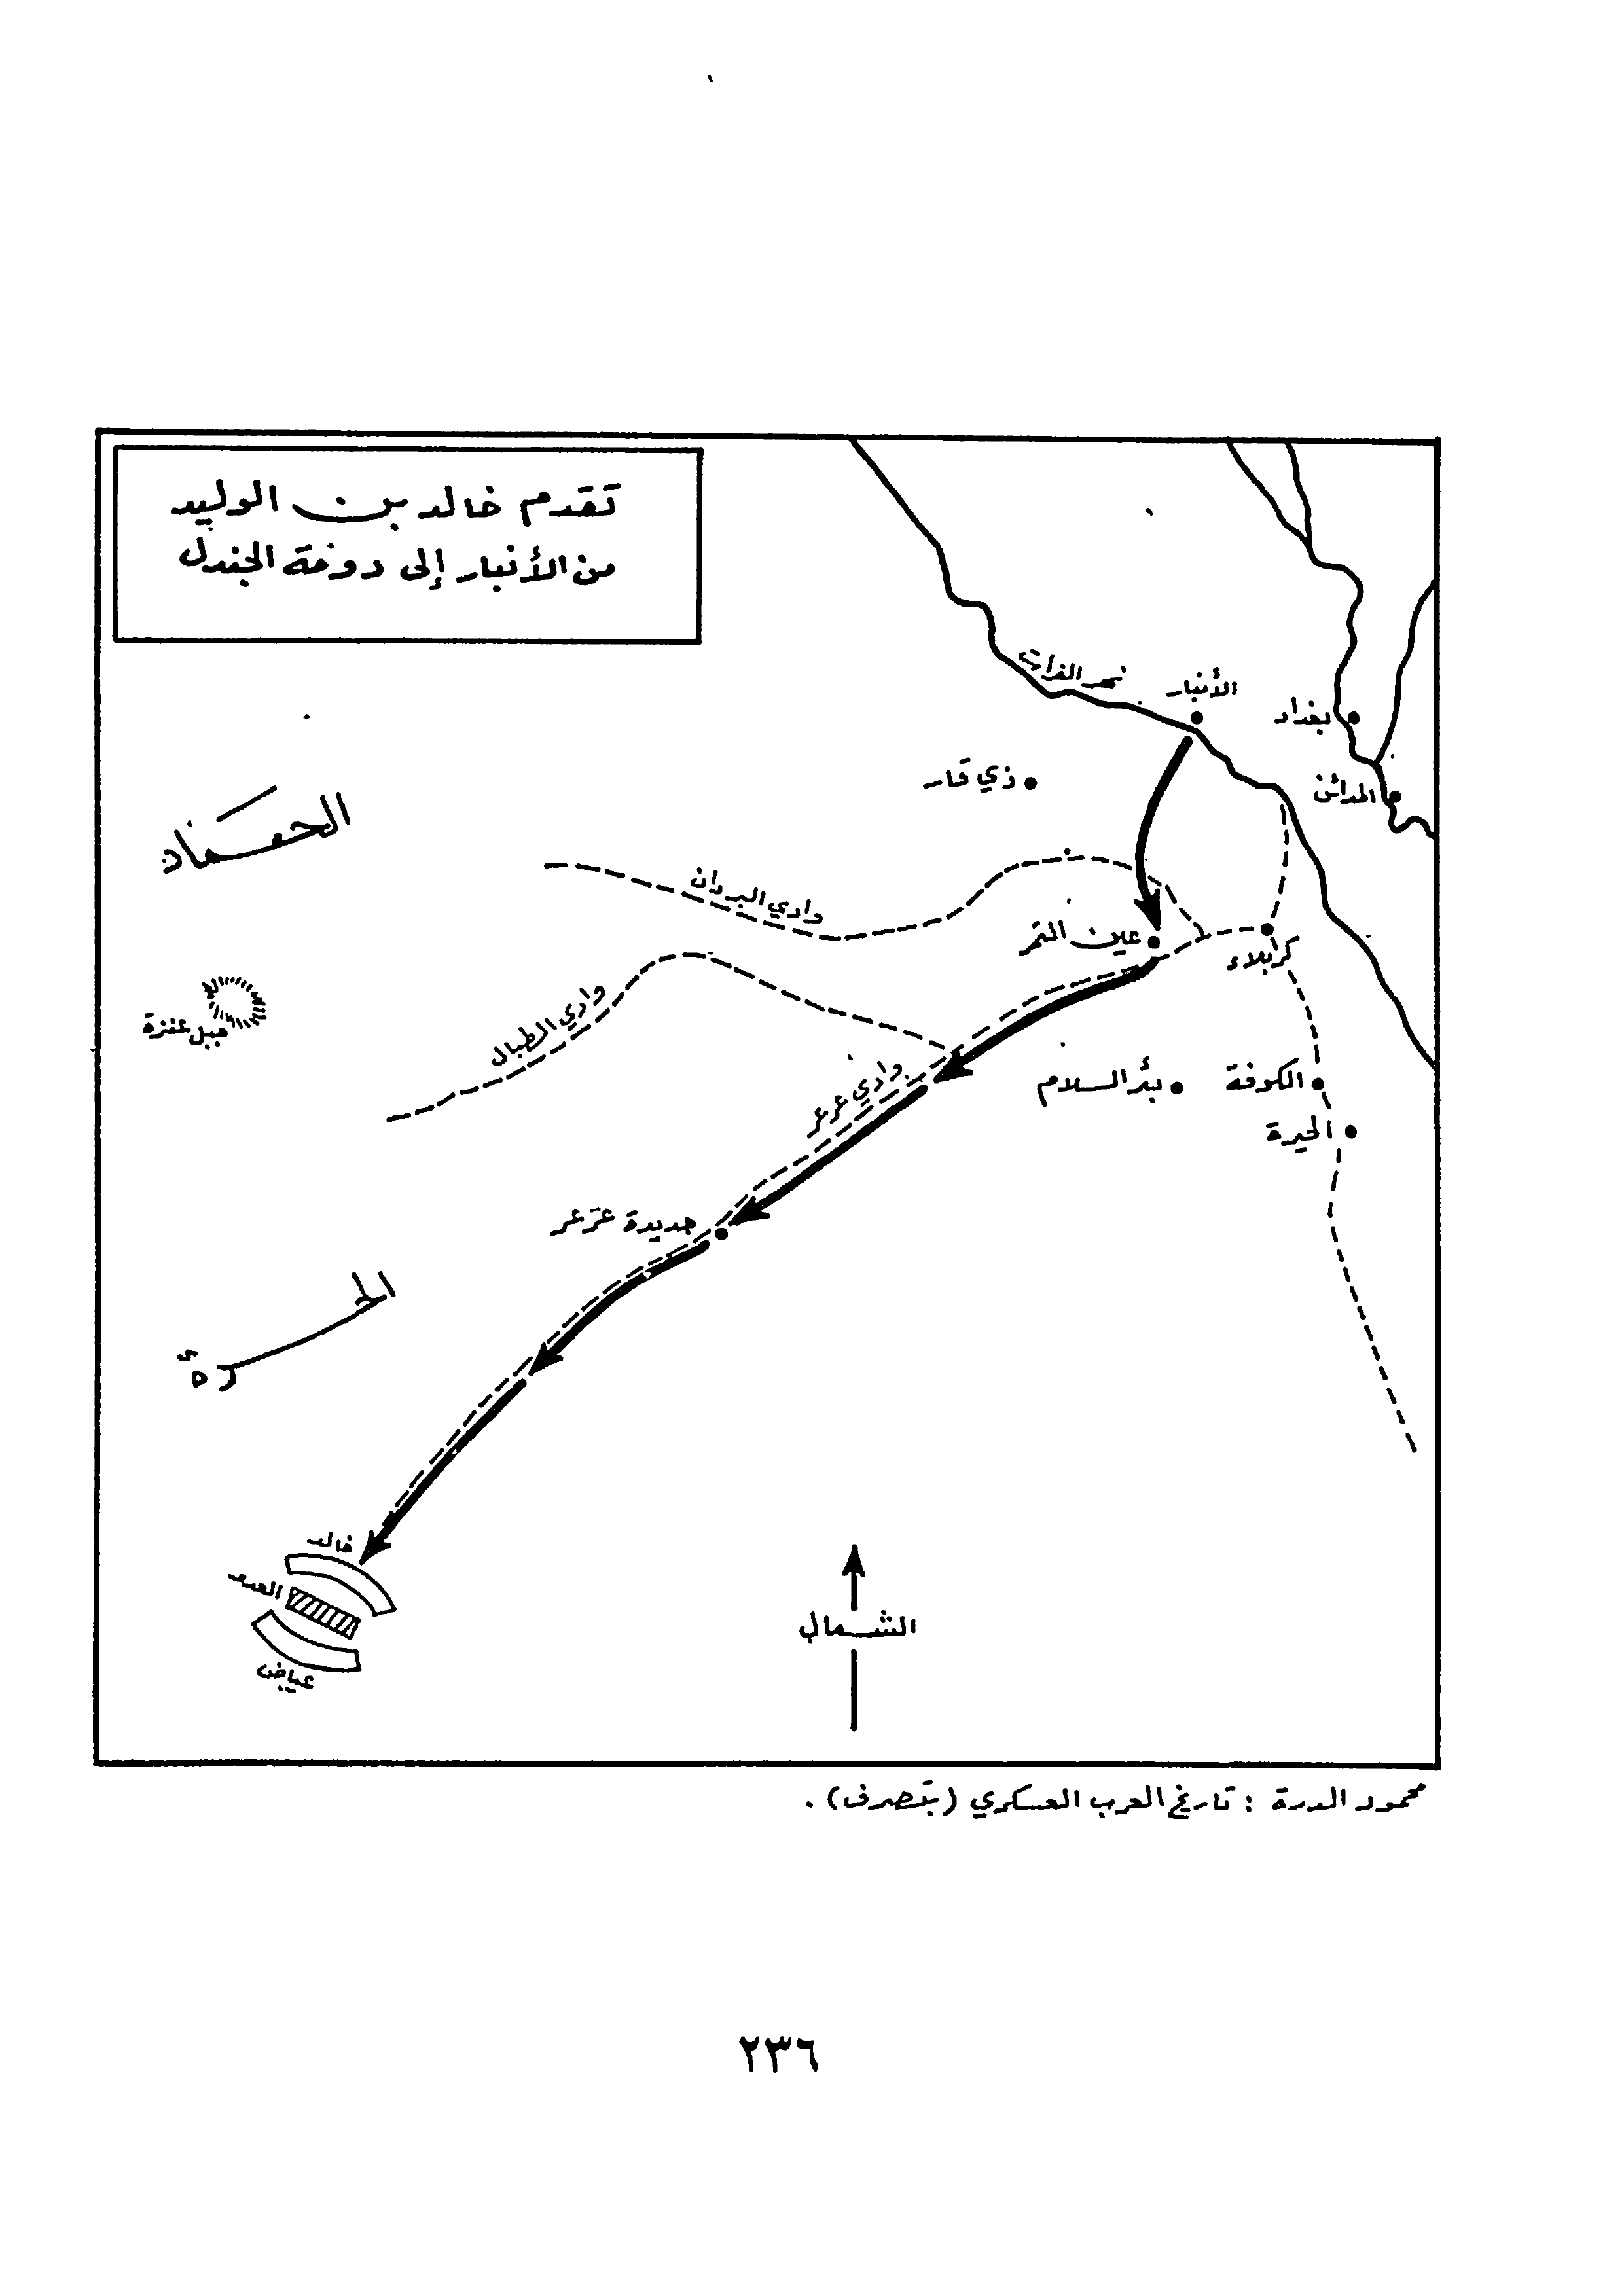 تقدم خالد بن الوليد
من الأنبار إلى دومة الجندل
نهر الفرات
الأنبار
بغداد
ذي قار
المدائن
الحماد
وادي البردان
عين التمر
كربلاء
وادي الطبال
جبل عنزة
وادي عرعر
بئر السلام
الكوفة
الحيرة
جديدة عرعر
الحرة
خالد
العدو
عياض
الشمال
محمود الدرة : تاريخ العرب العسكري (بتصرف) .
٢٣٦